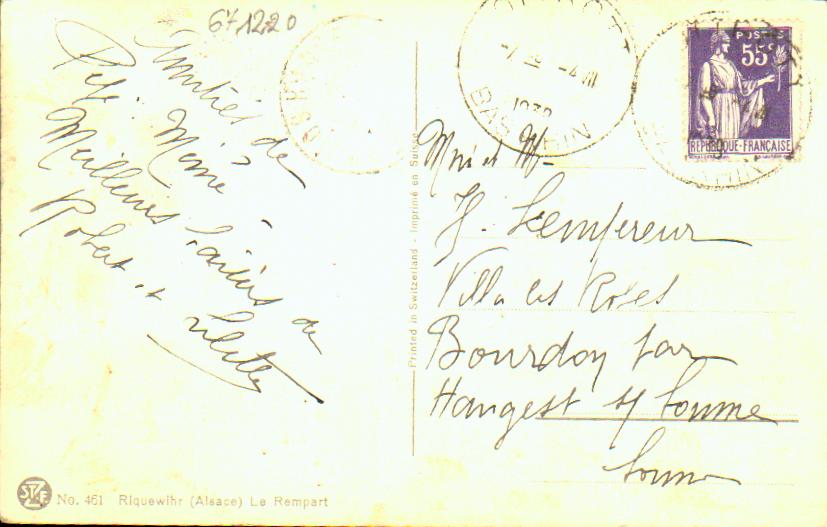 6712.20
Amitiés de
Pépé, Mémé
Meilleurs baisers de
Robert et
Printed in Switzerland - Imprimé en Suisse
POSTES
55c
REPUBLIQUE-FRANÇAISE
1938
BAS RHIN
Mme et Mr
H. Lempereur
Villa les Roses
Bourdon par
Hangest s/ Somme
Somme
No. 461 Riquewihr (Alsace) Le Rempart